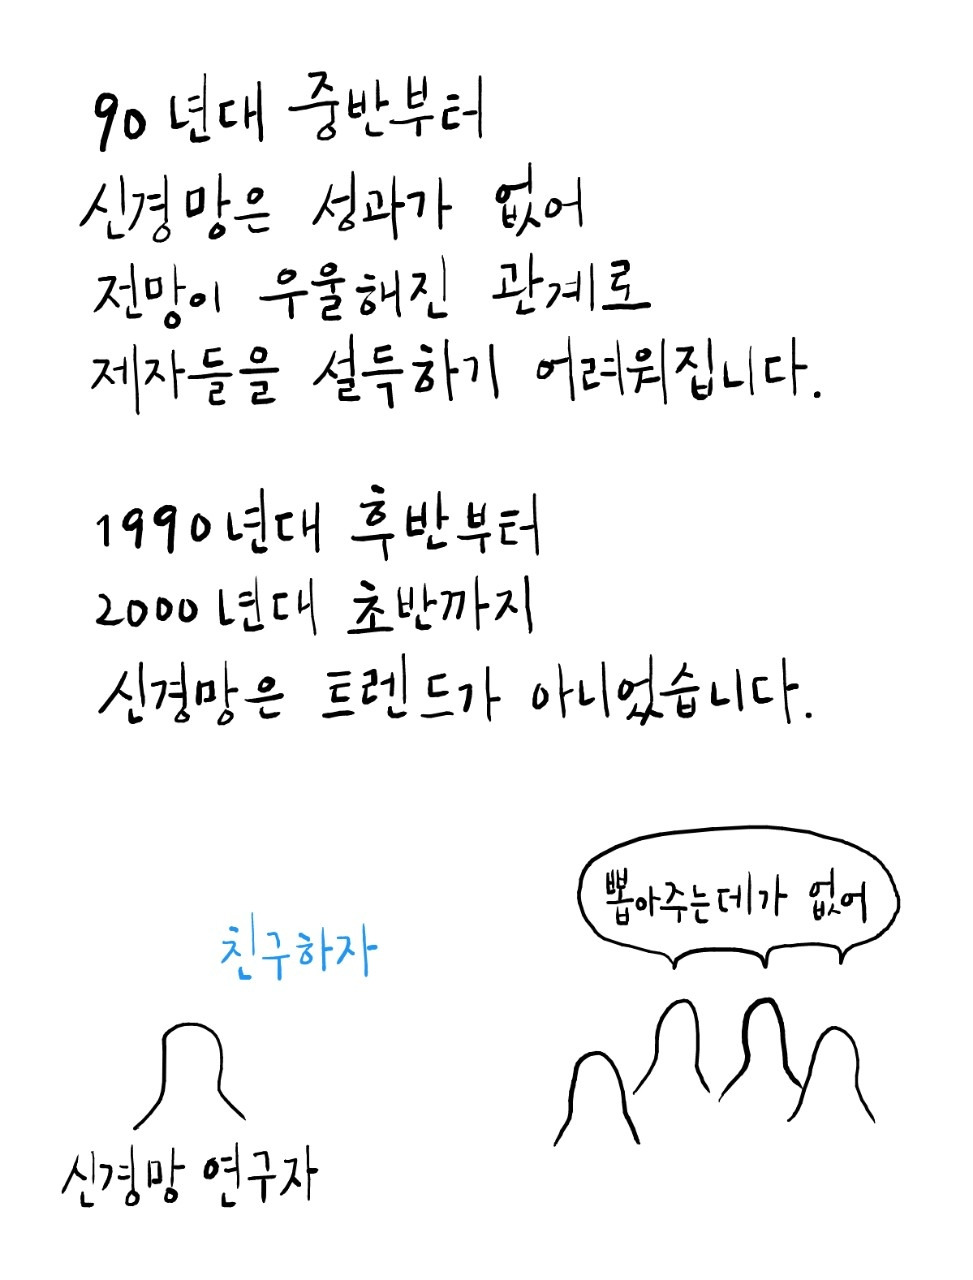 90년대 중반부터
신경망은 성과가 없어
전망이 우울해진 관계로
제자들을 설득하기 어려워집니다.
1990년대 후반부터
2000년대 초반까지
신경망은 트렌드가 아니었습니다.
뽑아주는데가 없어
친구하자
신경망 연구자